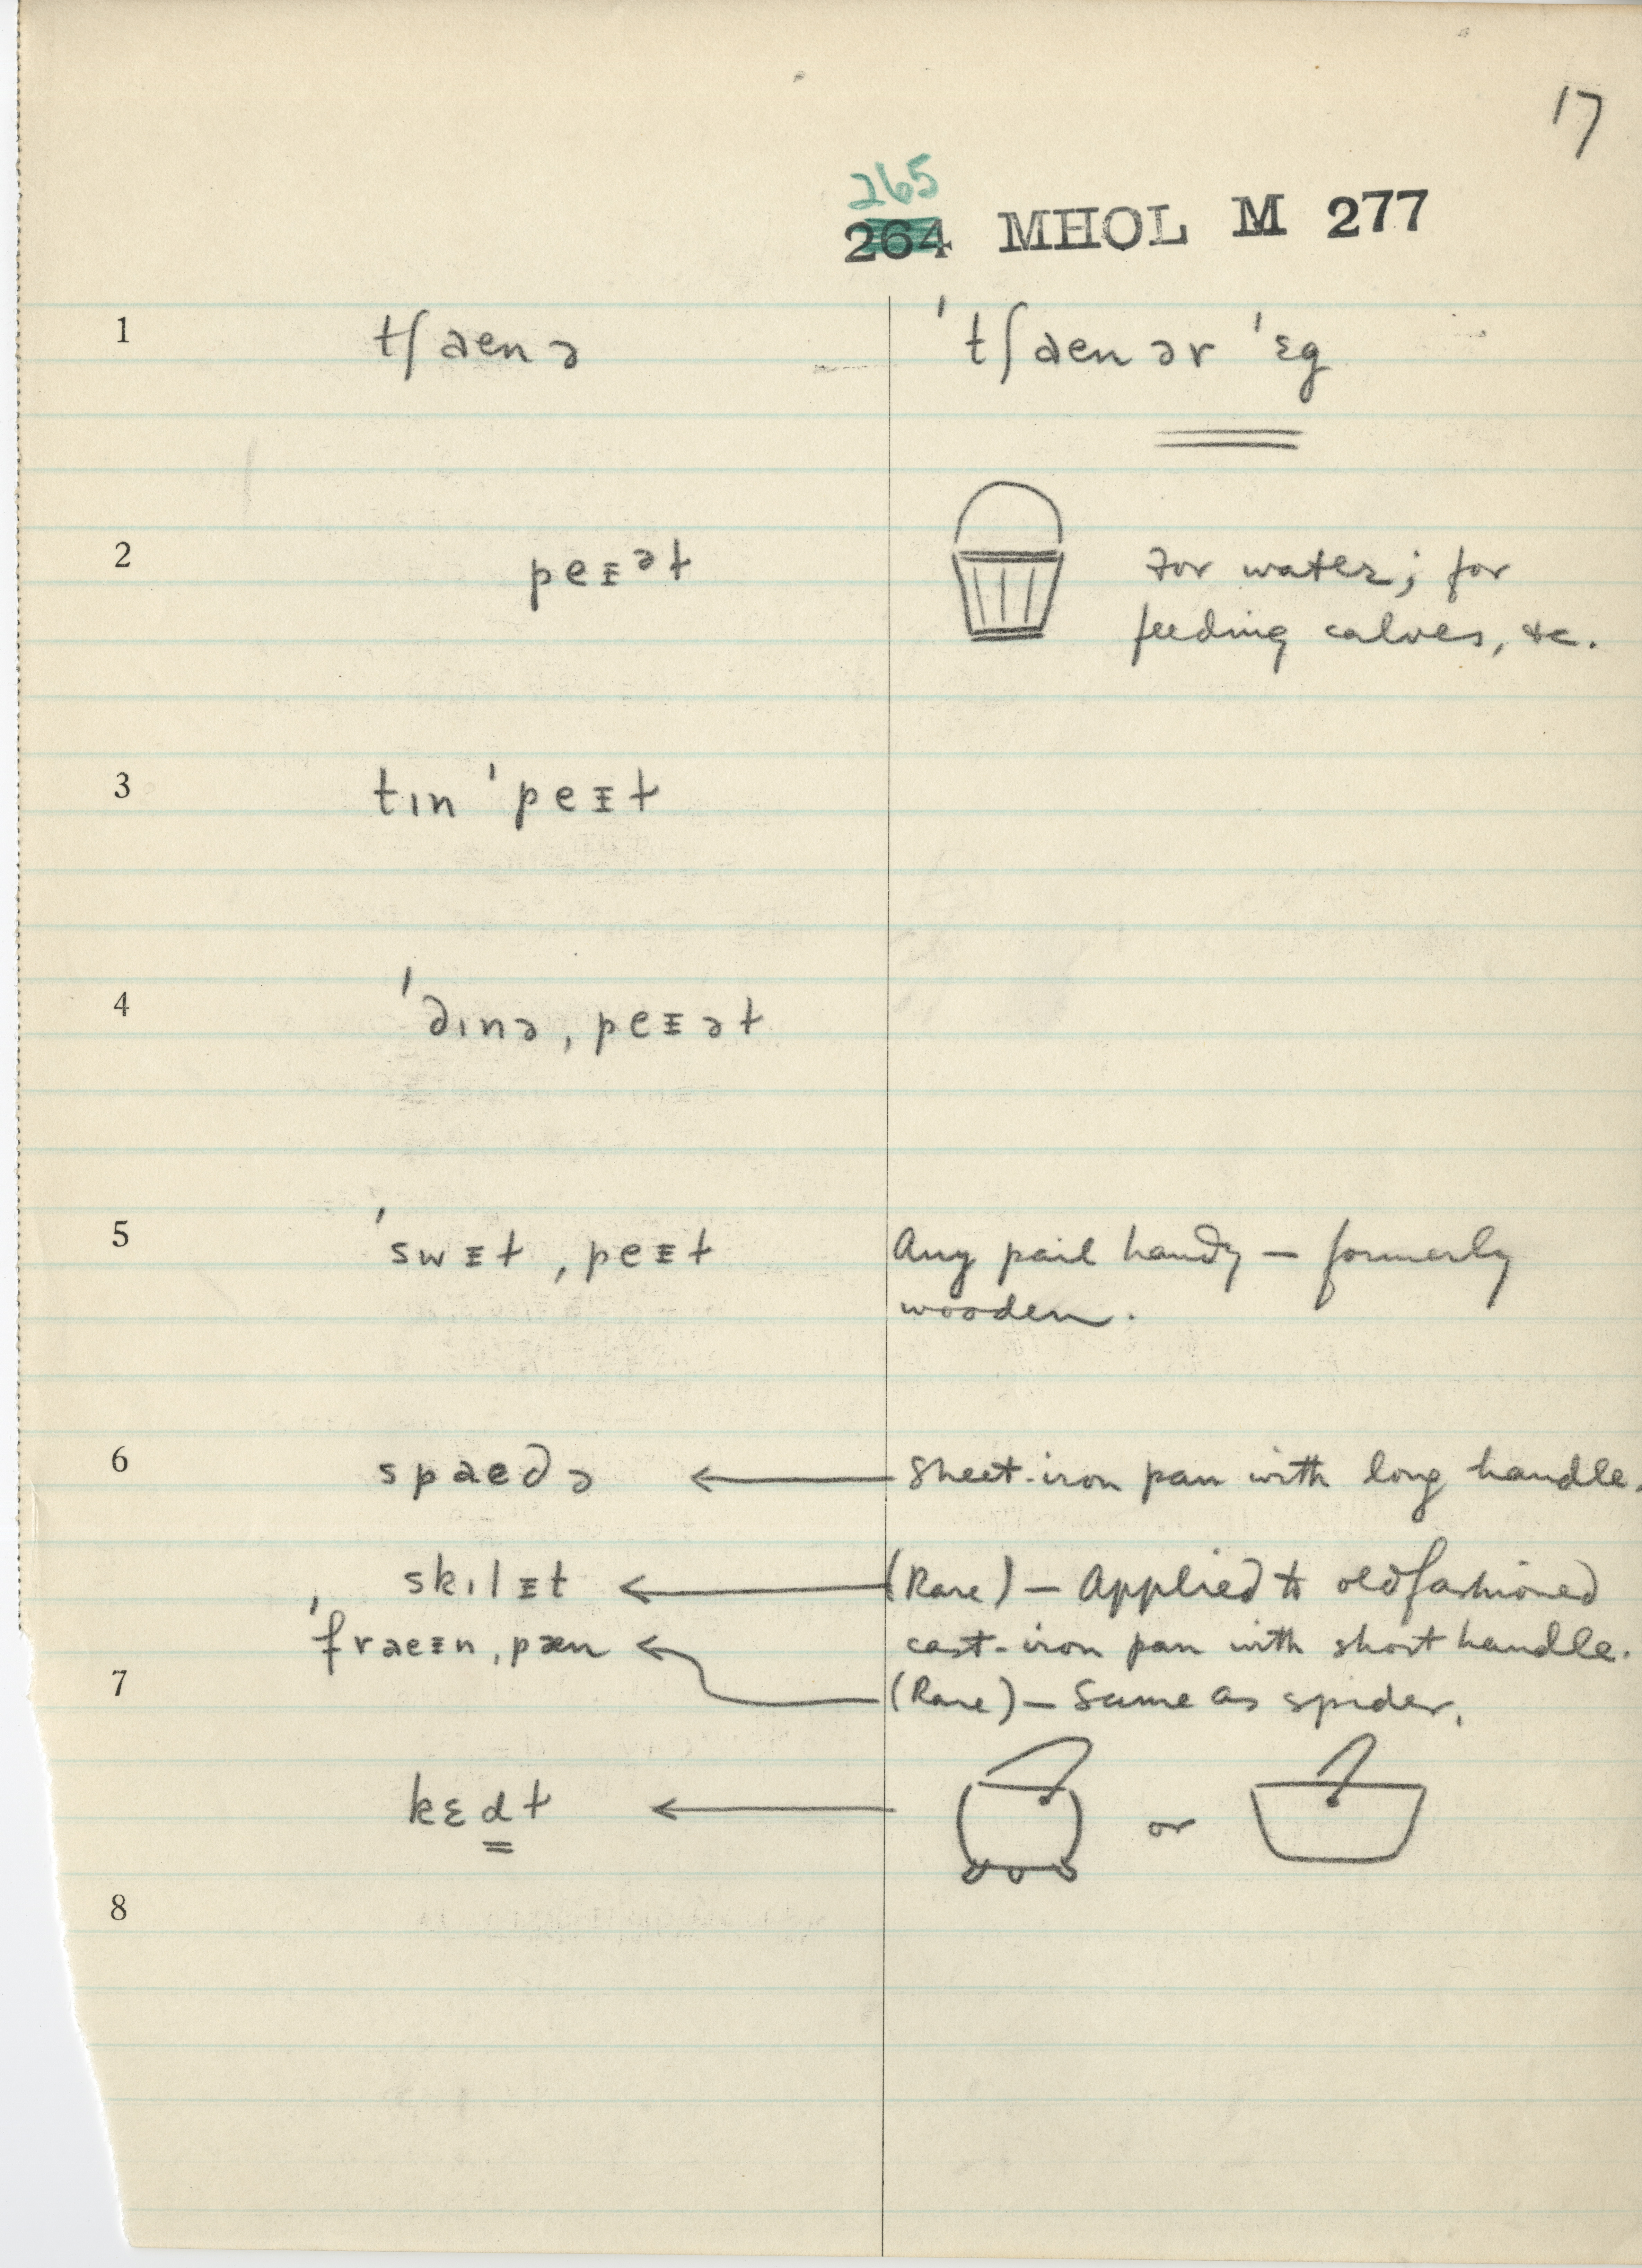 17
265
264 MHOL M 277
1 tʃaenə ˈtʃaenər ˈɛg
2 peᵻᵊɫ For water; for
feeding calves, &c.
3 tɪn ˈpeᵻɫ
4 ˈdɪnə ˌpeᵻəɫ
5 ˈswᵻɫ ˌpeᵻɫ Any pail handy – formerly
wooden.
6 spaedə ← Sheet-iron pan with long handle.
skɪlᵻt ← (Rare) – Applied to oldfashioned
ˈfraeᵻn ˌpæn ← cast-iron pan with short handle.
7 (Rare) – Same as spider.
kɛdɫ ← or
8